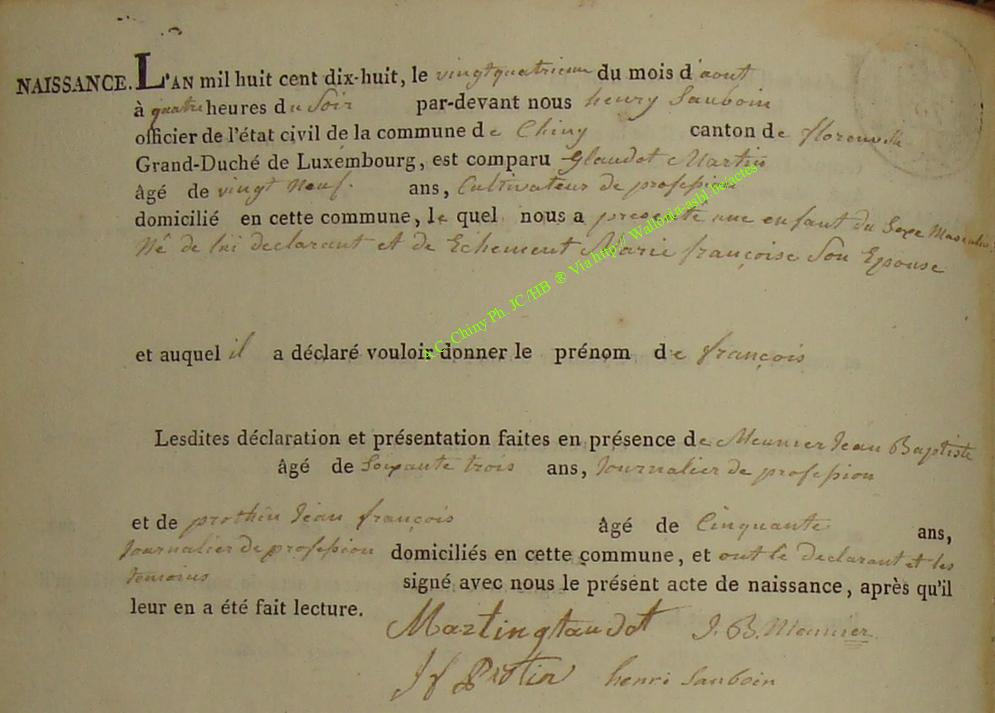 NAISSANCE. L'AN mil huit cent dix-huit, le vingtquatrieme du mois d'aout
à quatre heures du Soir par-devant nous henry Sauboin
officier de l'état civil de la commune de Chiny canton de florenville
Grand-Duché de Luxembourg, est comparu Glaudot Martin
âgé de vingt Neuf. ans, Cultivateur de profession
domicilié en cette commune, le quel nous a presenté une enfant du Sexe Masculin
Né de lui declarant et de Echement Marie françoise Son Epouse
et auquel il a déclaré vouloir donner le prénom de françois
Lesdites déclaration et présentation faites en présence de Meunier Jean Baptiste
âgé de Soixante trois ans, Journalier de profession
et de prothin Jean françois âgé de Cinquante ans,
Journalier de profession domiciliés en cette commune, et ont le declarant et les
temoins signé avec nous le présent acte de naissance, après qu'il
leur en a été fait lecture.
Martinglaudot J. B. Meunier
J f Protin henri Sauboin
E.C. Chiny Ph. JC/HB ® Via http://Wallonia-asbl.be/actes